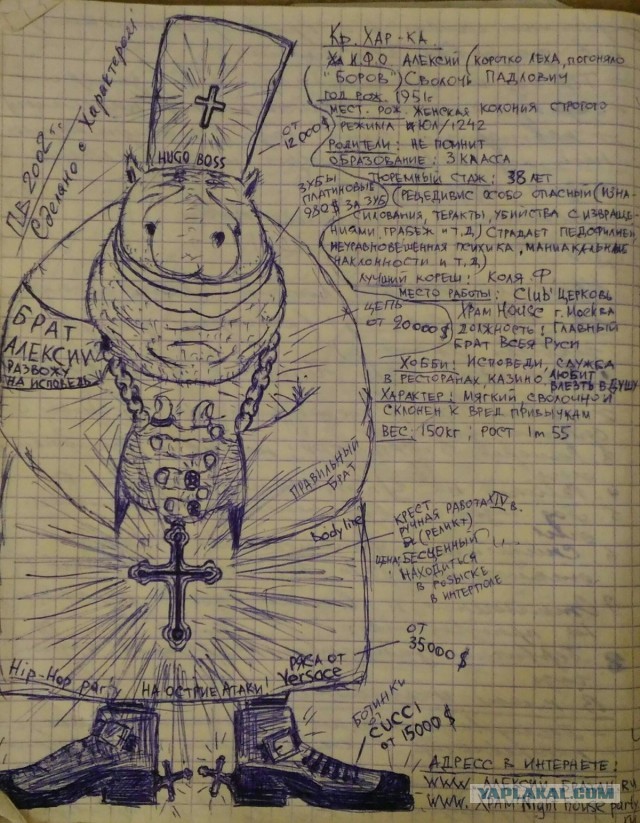 ПБ 2002 г.
Сделано с Характером!
HUGO BOSS
от
12000$
ЗУБЫ
ПЛАТИНОВЫЕ
930$ ЗА ЗУБ
ЦЕПЬ
ОТ 20000$
БРАТ
АЛЕКСИЙ
РАЗВОЖУ
НА ИСПОВЕДЬ
ПРАВИЛЬНЫЙ
БРАТ
body line
КРЕСТ
РУЧНАЯ РАБОТА XIV в.
(РЕЛИКТ)
ЦЕНА: БЕСЦЕННЫЙ
НАХОДИТЬСЯ
В РОЗЫСКЕ
В ИНТЕРПОЛЕ
ОТ
35000$
Hip-Hop party
НА ОСТРИЕ АТАКИ!
РЯСА ОТ
Versace
БОТИНКИ
ОТ
CUCCI
ОТ 15000$
Кр. ХАР-КА
Ф.И.О. АЛЕКСИЙ (КОРОТКО ЛЕХА, ПОГОНЯЛО
"БОРОВ") СВОЛОЧЬ ПАДЛОВИЧ
ГОД РОЖ. 1951г
МЕСТ. РОЖ. ЖЕНСКАЯ КОЛОНИЯ СТРОГОГО
РЕЖИМА #ЮЛ/1242
РОДИТЕЛИ: НЕ ПОМНИТ
ОБРАЗОВАНИЕ: 3 КЛАССА
ТЮРЕМНЫЙ СТАЖ: 38 ЛЕТ
(РЕЦЕДИВИС ОСОБО ОПАСНЫЙ (ИЗНА-
СИЛОВАНИЯ, ТЕРАКТЫ, УБИЙСТВА С ИЗВРАЩЕ-
НИЯМИ ГРАБЕЖ И Т.Д.) СТРАДАЕТ ПЕДОФИЛИЕЙ
НЕУРАВНОВЕШЕННАЯ ПСИХИКА, МАНИАКАЛЬНЫЕ
НАКЛОННОСТИ И Т.Д)
ЛУЧШИЙ КОРЕШ: КОЛЯ Ф
МЕСТО РАБОТЫ: Club ЦЕРКОВЬ
ХРАМ HOUSE г. МОСКВА
ДОЛЖНОСТЬ: ГЛАВНЫЙ
БРАТ ВСЕЯ РУСИ
ХОББИ: ИСПОВЕДИ, СЛУЖБА
В РЕСТОРАНАХ КАЗИНО ЛЮБИТ
ВЛЕЗТЬ В ДУШУ
ХАРАКТЕР: МЯГКИЙ СВОЛОЧНОЙ
СКЛОНЕН К ВРЕД ПРИВЫЧКАМ
ВЕС: 150кг; РОСТ 1m 55
АДРЕСС В ИНТЕРНЕТЕ:
WWW. АЛЕКСИЙ
WWW. ХРАМ Night house party
ru
YAPLAKAL.COM